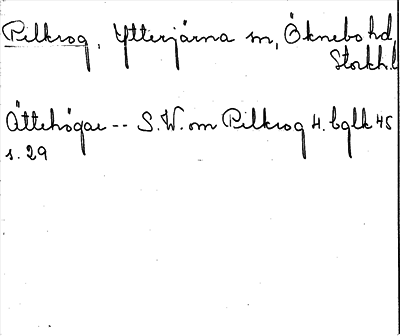 Pilkrog, Ytterjärna sn, Öknebo hd,
Stockh.l
Ättehögar -- S.W. om Pilkrog 4. bglk 45
s. 29